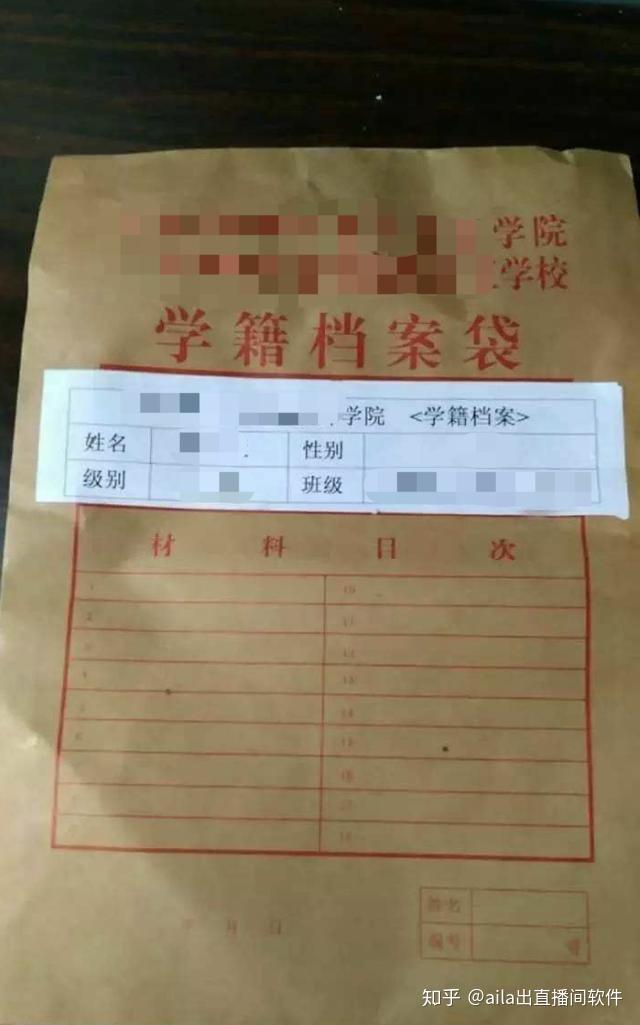 学院
学校
学籍档案袋
学院 <学籍档案>
姓名 性别
级别 班级
材料目次
1 10
2 11
3 12
4 13
5 14
6 15
16
17
18
姓名
年 月 日
编号 号
知乎 @aila出直播间软件